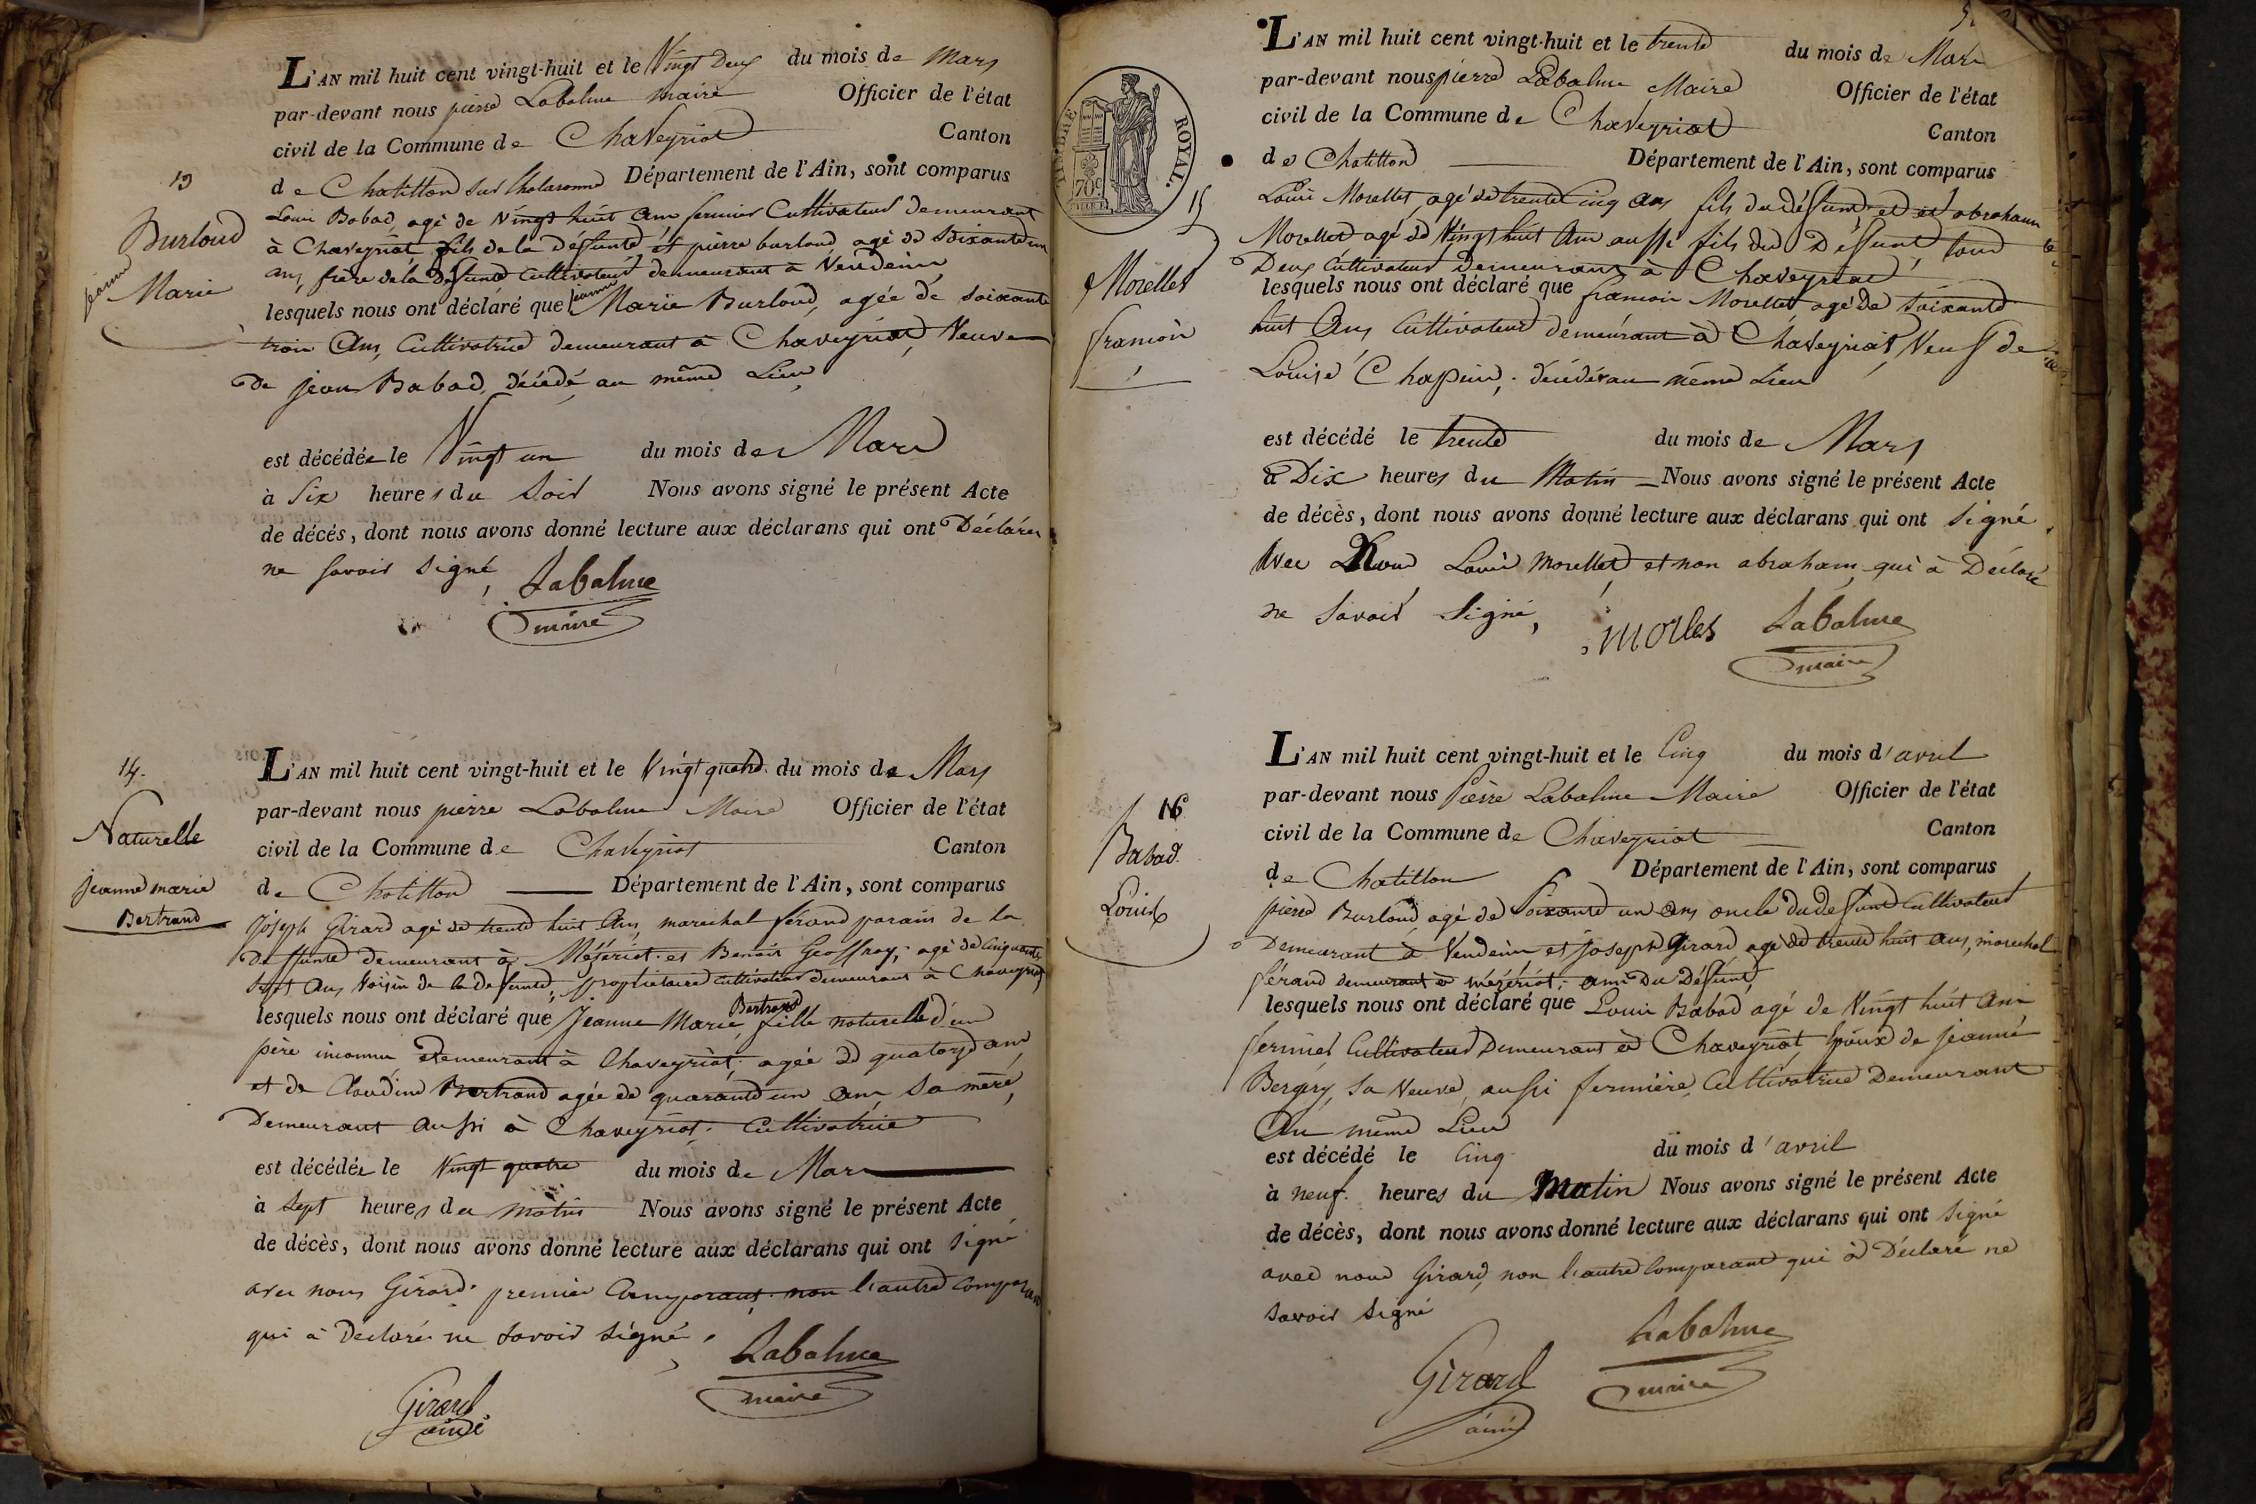 13
Burloud
jeanne
Marie
L'AN mil huit cent vingt-huit et le Vingt Deux du mois de Mars
par-devant nous pierre Labalme maire Officier de l'état
civil de la Commune de Chaveyriat Canton
de Chatillon sur Chalaronne Département de l'Ain, sont comparus
Louis Babad, agé de Vingt huit Ans fermier Cultivateur demeurant
à Chaveyriat fils de la défunte et pierre burloud agé de Soixante un
ans, frère de la défunte Cultivateur demeurant à Vendeins
lesquels nous ont déclaré que jeanne Marie Burloud, agée de soixante
trois Ans, Cultivatrice demeurant à Chaveyriat, Veuve
De jean Babad, décédé, au même Lieu
est décédée le Vingt un du mois de Mars
à Six heures du Soir Nous avons signé le présent Acte
de décés, dont nous avons donné lecture aux déclarans qui ont Déclarés
ne savoir signé,
Labalme
maire
14.
Naturelle
jeanne marie
Bertrand
L'AN mil huit cent vingt-huit et le Vingt quatre du mois de Mars
par-devant nous pierre Labalme Maire Officier de l'état
civil de la Commune de Chaveyriat Canton
de Chatillon Département de l'Ain, sont comparus
joseph Girard agé de trente huit Ans, marechal férand parain de la
Deffunte demeurant à Mézériat et Benoit Geoffray, agé de Cinquante
Sept Ans Voisin de la defunte, propriétaire cultivateur demeurant à Chaveyriat
lesquels nous ont déclaré que Jeanne Marie Bertrand fille naturelle d'un
père inconnu demeurant à Chaveyriat, agée de quatorze ans
et de Claudine Bertrand agée de quarante un ans, Sa mère,
Demeurant aussi à Chaveyriat. Cultivatrice
est décédée le Vingt quatre du mois de Mars
à Sept heures du matin Nous avons signé le présent Acte
de décès, dont nous avons donné lecture aux déclarans qui ont signé
avec nous Girard premier Comparant, non l'autre comparant
qui à Déclaré ne savoir signé,
Labalme
maire
Girard
ainé
TIMBRE ROYAL.
70c
15
Morellet
framcois
L'AN mil huit cent vingt-huit et le trente du mois de Mars
par-devant nous pierre Labalme Maire Officier de l'état
civil de la Commune de Chaveyriat Canton
de Chatillon Département de l'Ain, sont comparus
Louis Morellet, agé de trente Cinq Ans fils du défunt, et abraham
Morellet agé de Vingt huit Ans aussi fils du Défunt, tous
Deux Cultivateurs Demeurans à Chaveyriat
lesquels nous ont déclaré que framcois Morellet agé de Soixante
huit Ans Cultivateur demeurant à Chaveyriat, Veuf de
Louise Chapuis, décédée au même Lieu
est décédé le trente du mois de Mars
à Dix heures du Matin Nous avons signé le présent Acte
de décès, dont nous avons donné lecture aux déclarans qui ont signé
avec Nous Louis Morellet et non abraham, qui à Déclaré
ne Savoir Signé,
morles
Labalme
maire
16
Babad
Louis
L'AN mil huit cent vingt-huit et le Cinq du mois d'avril
par-devant nous Pierre Labalme Maire Officier de l'état
civil de la Commune de Chaveyriat Canton
de Chatillon Département de l'Ain, sont comparus
pierre Burloud, agé de Soixante un ans oncle du defunt Cultivateur
Demeurant à Vendeins et joseph Girard agé de trente huit Ans, marechal
férand demeurant à mézériat, ami du Défunt,
lesquels nous ont déclaré que Louis Babad agé de Vingt huit Ans
fermier Cultivateur Demeurant à Chaveyriat, Epoux de jeanne
Bergéry, Sa Veuve, aussi fermière Cultivatrice Demeurant
Au même Lieu
est décédé le Cinq du mois d'avril
à neuf heures du Matin Nous avons signé le présent Acte
de décès, dont nous avons donné lecture aux déclarans qui ont signé
avec nous Girard, non l'autre Comparant qui à Déclaré ne
savoir signé
Labalme
maire
Girard
ainé